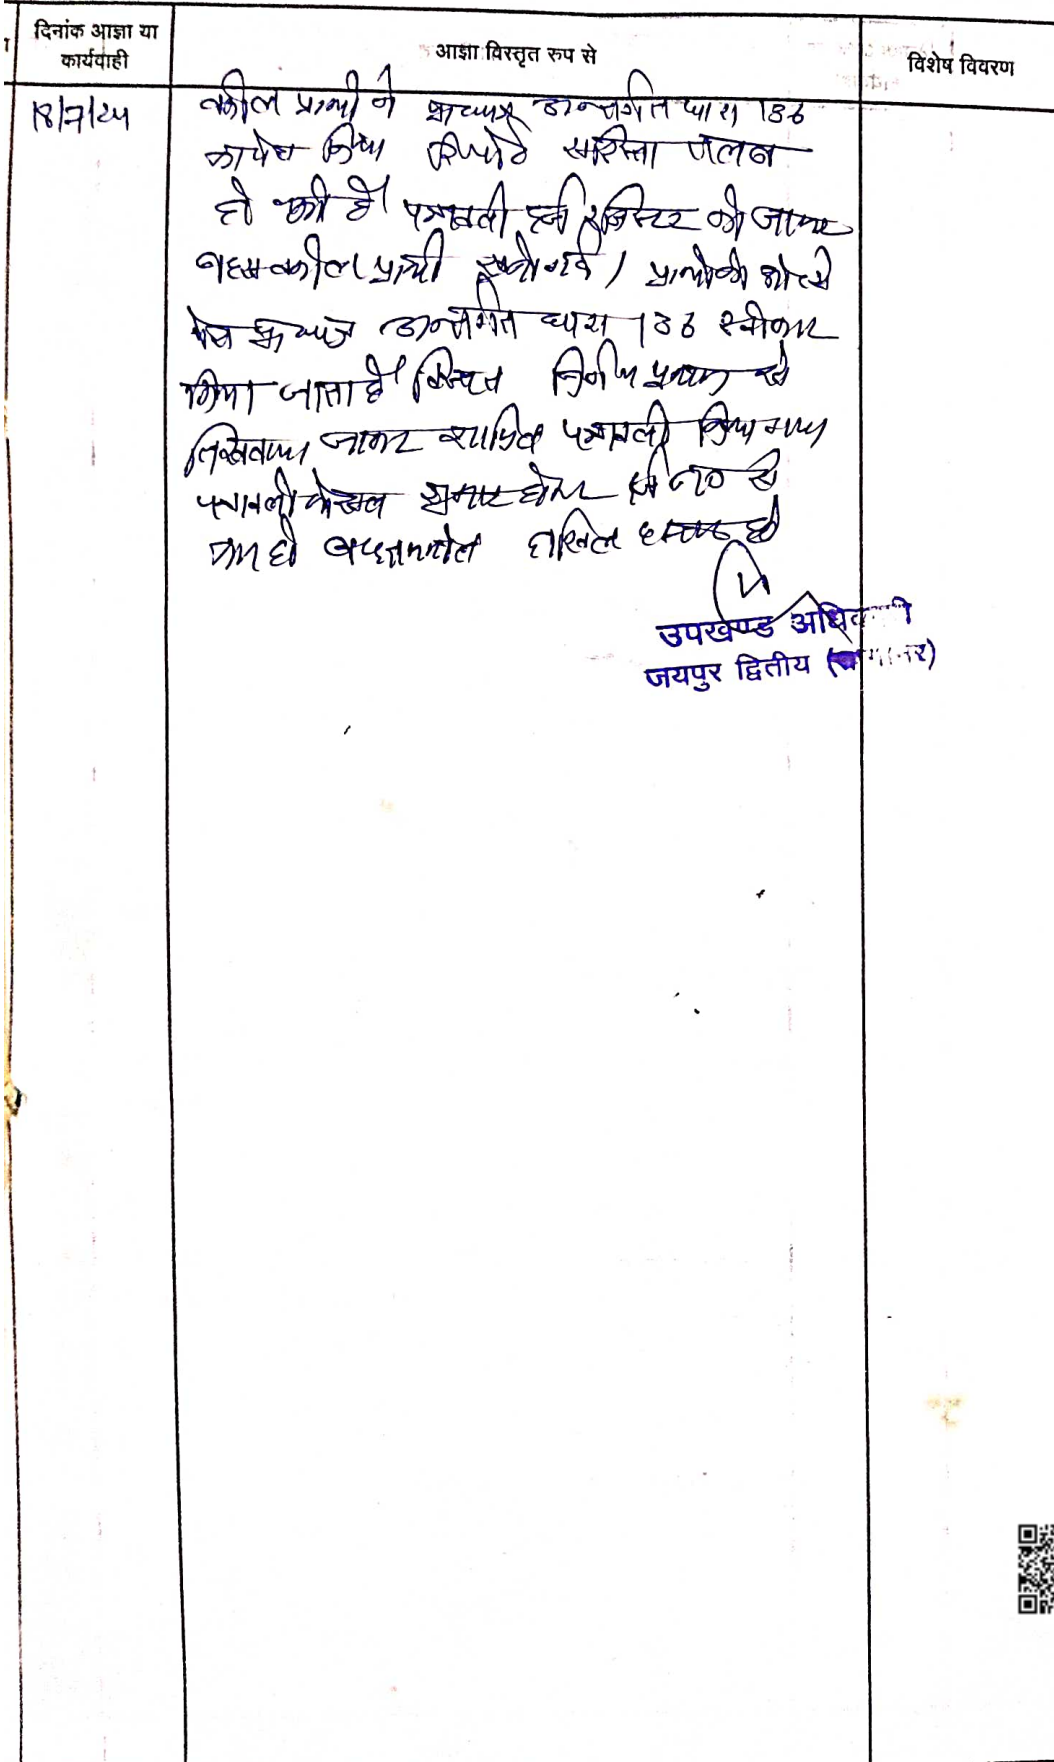 दिनांक आज्ञा या
कार्यवाही
आज्ञा विस्तृत रूप से
विशेष विवरण
18/7/24
वकील प्रार्थी ने अन्तर्गत धारा 136
का पेश किया रिपोर्ट सरिस्ता
हो की है पत्रावली दर्ज रजिस्टर की जाकर
बहस वकील प्रार्थी सुनी गई। प्रार्थी की ओर से
पेश अन्तर्गत धारा 136 स्वीकार
किया जाता है विस्तृत निर्णय पृथक से
लिखवाया जाकर शामिल पत्रावली किया गया
पत्रावली फैसल शुमार होकर नम्बर से
कम हो दाखिल दफ्तर हो
उपखण्ड अधिकारी
जयपुर द्वितीय (सांगानेर)